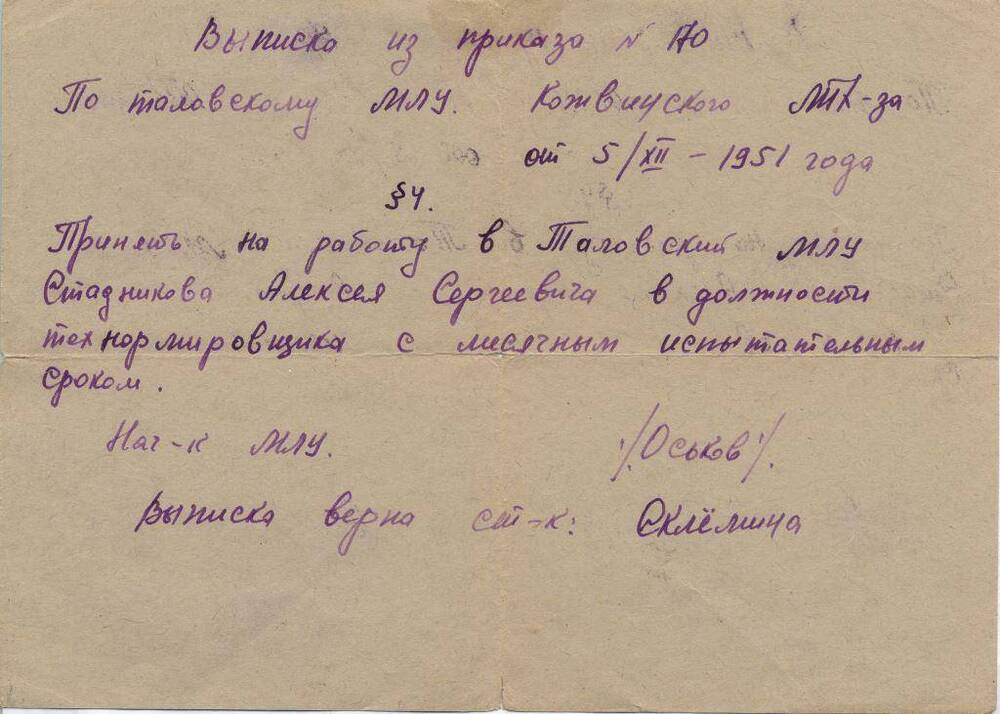 Выписка из приказа № 170
По таловскому МЛУ. Кожвинского ЛТХ-за
от 5/XII - 1951 года
§4.
Принять на работу в Таловский МЛУ
Стадникова Алексея Сергеевича в должности
технормировщика с мисячным испытательным
сроком.
Нач-к МЛУ. /Оськов/.
Выписка верна ст-к: Склёмина